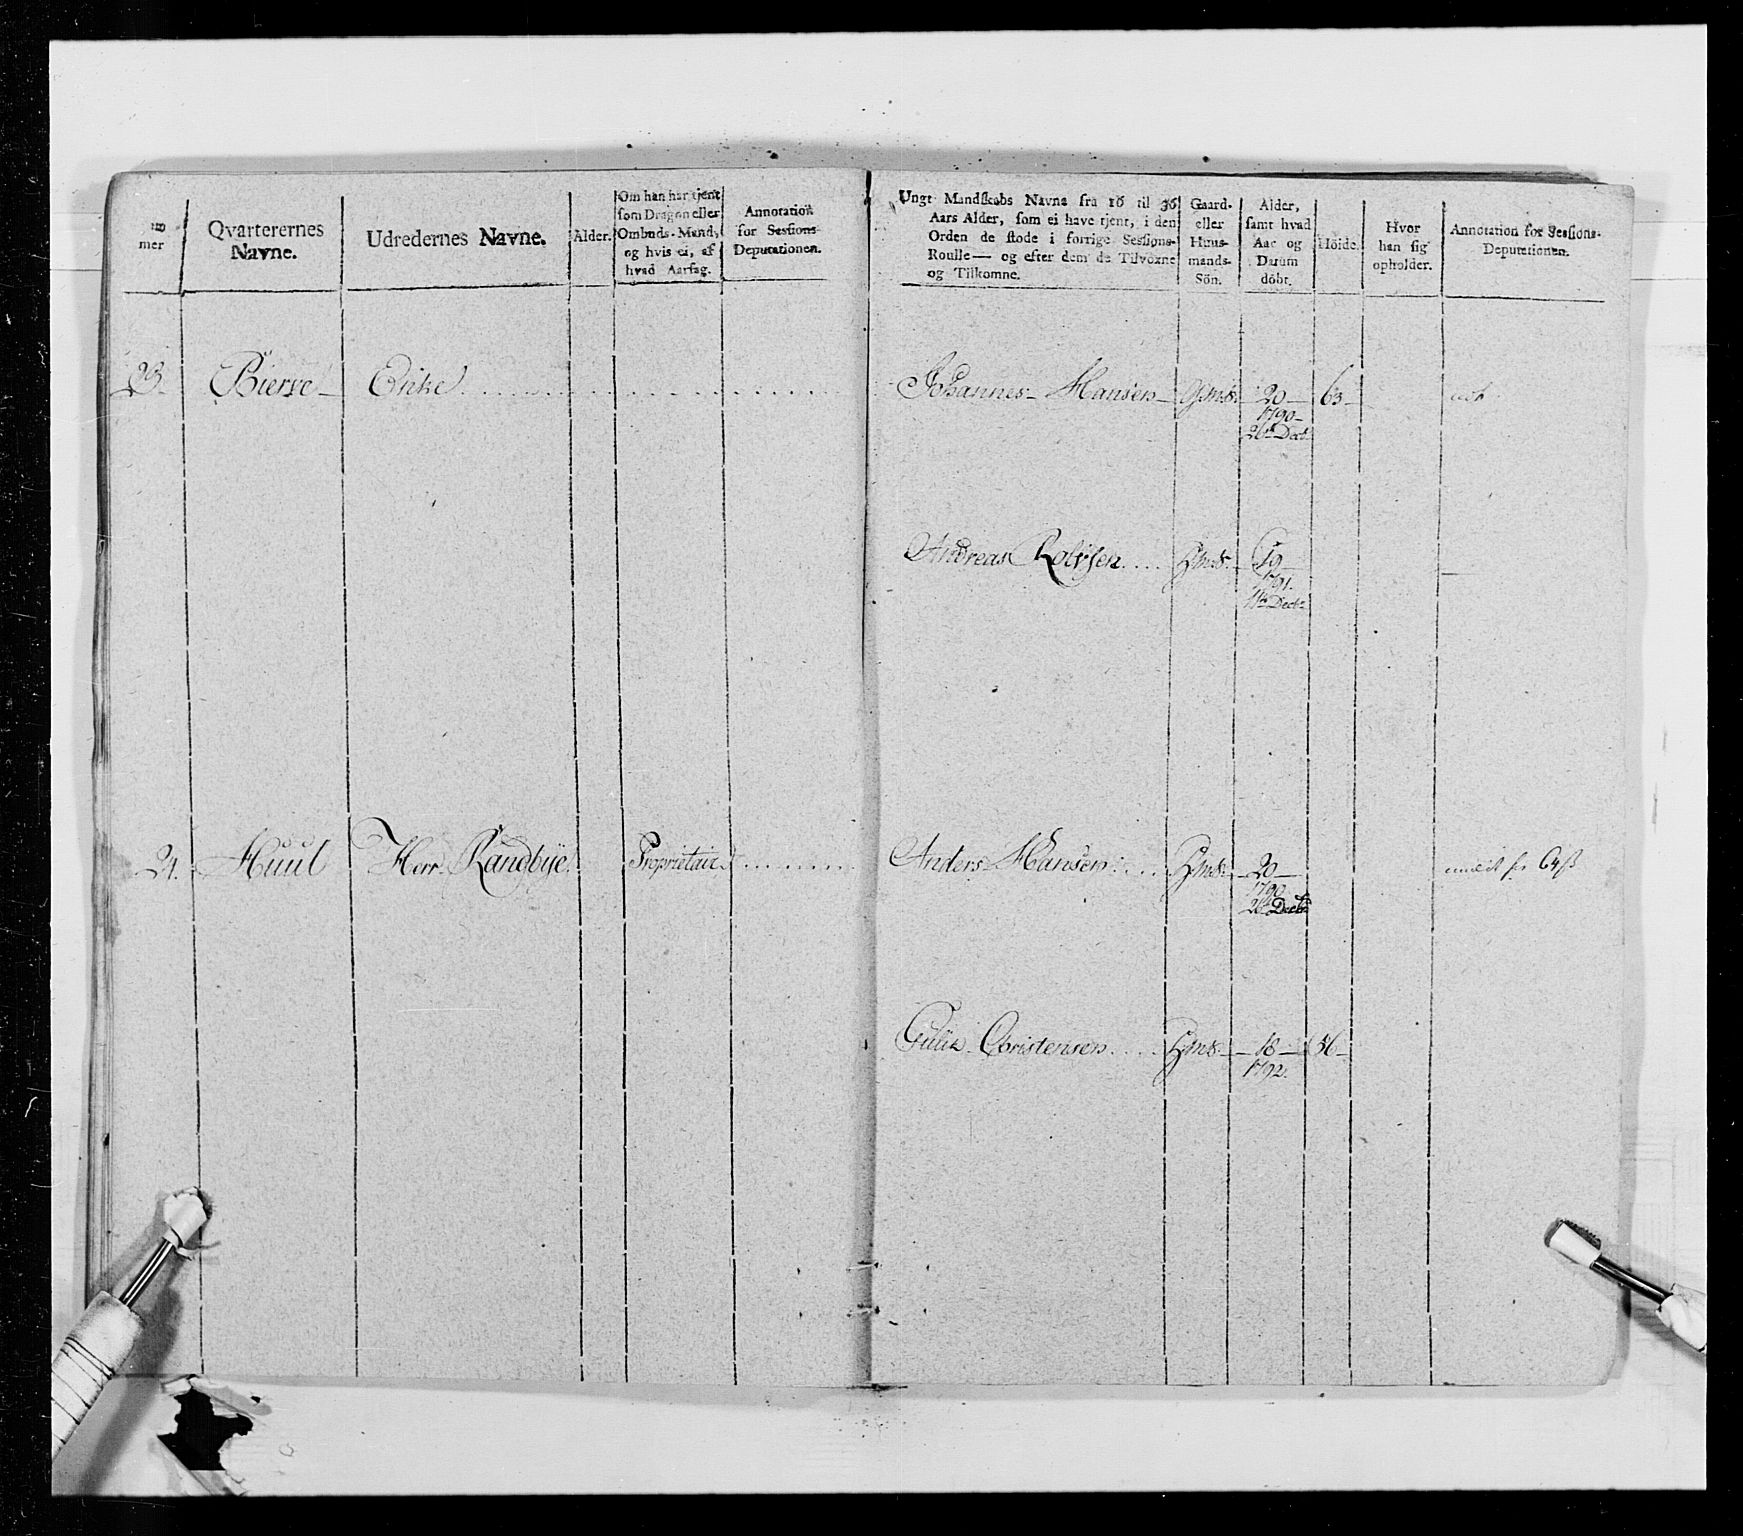 mer
Qvarterernes
Navne.
Udredernes Navne.
Alder.
Om han har tjent
som Dragon eller
Ombuds-Mand,
og hvis ei, af
hvad Aarsag.
Annotation
for Sessions-
Deputationen.
Ungt Mandskabs Navne fra 16 til 36
Aars Alder, som ei have tjent, i den
Orden de stode i forrige Sessions-
Roulle — og efter dem de Tilvoxne
og Tilkomne.
Gaard-
eller
Huus-
mands-
Sön.
Alder,
samt hvad
Aar og
Datum
döbt.
Höide.
Hvor
han sig
opholder.
Annotation for Sessions-
Deputationen.
23. Bierke Enke Johannes Hansen Gms. 20 63
1790
26de Decb.
Andreas Hms. 19
1791.
11te Decbr
24. Huul Herr Randbye. Proprietair Anders Hansen Hms. 20 64
1790
26de Decbr
Christensen Hms. 18 56
1792.